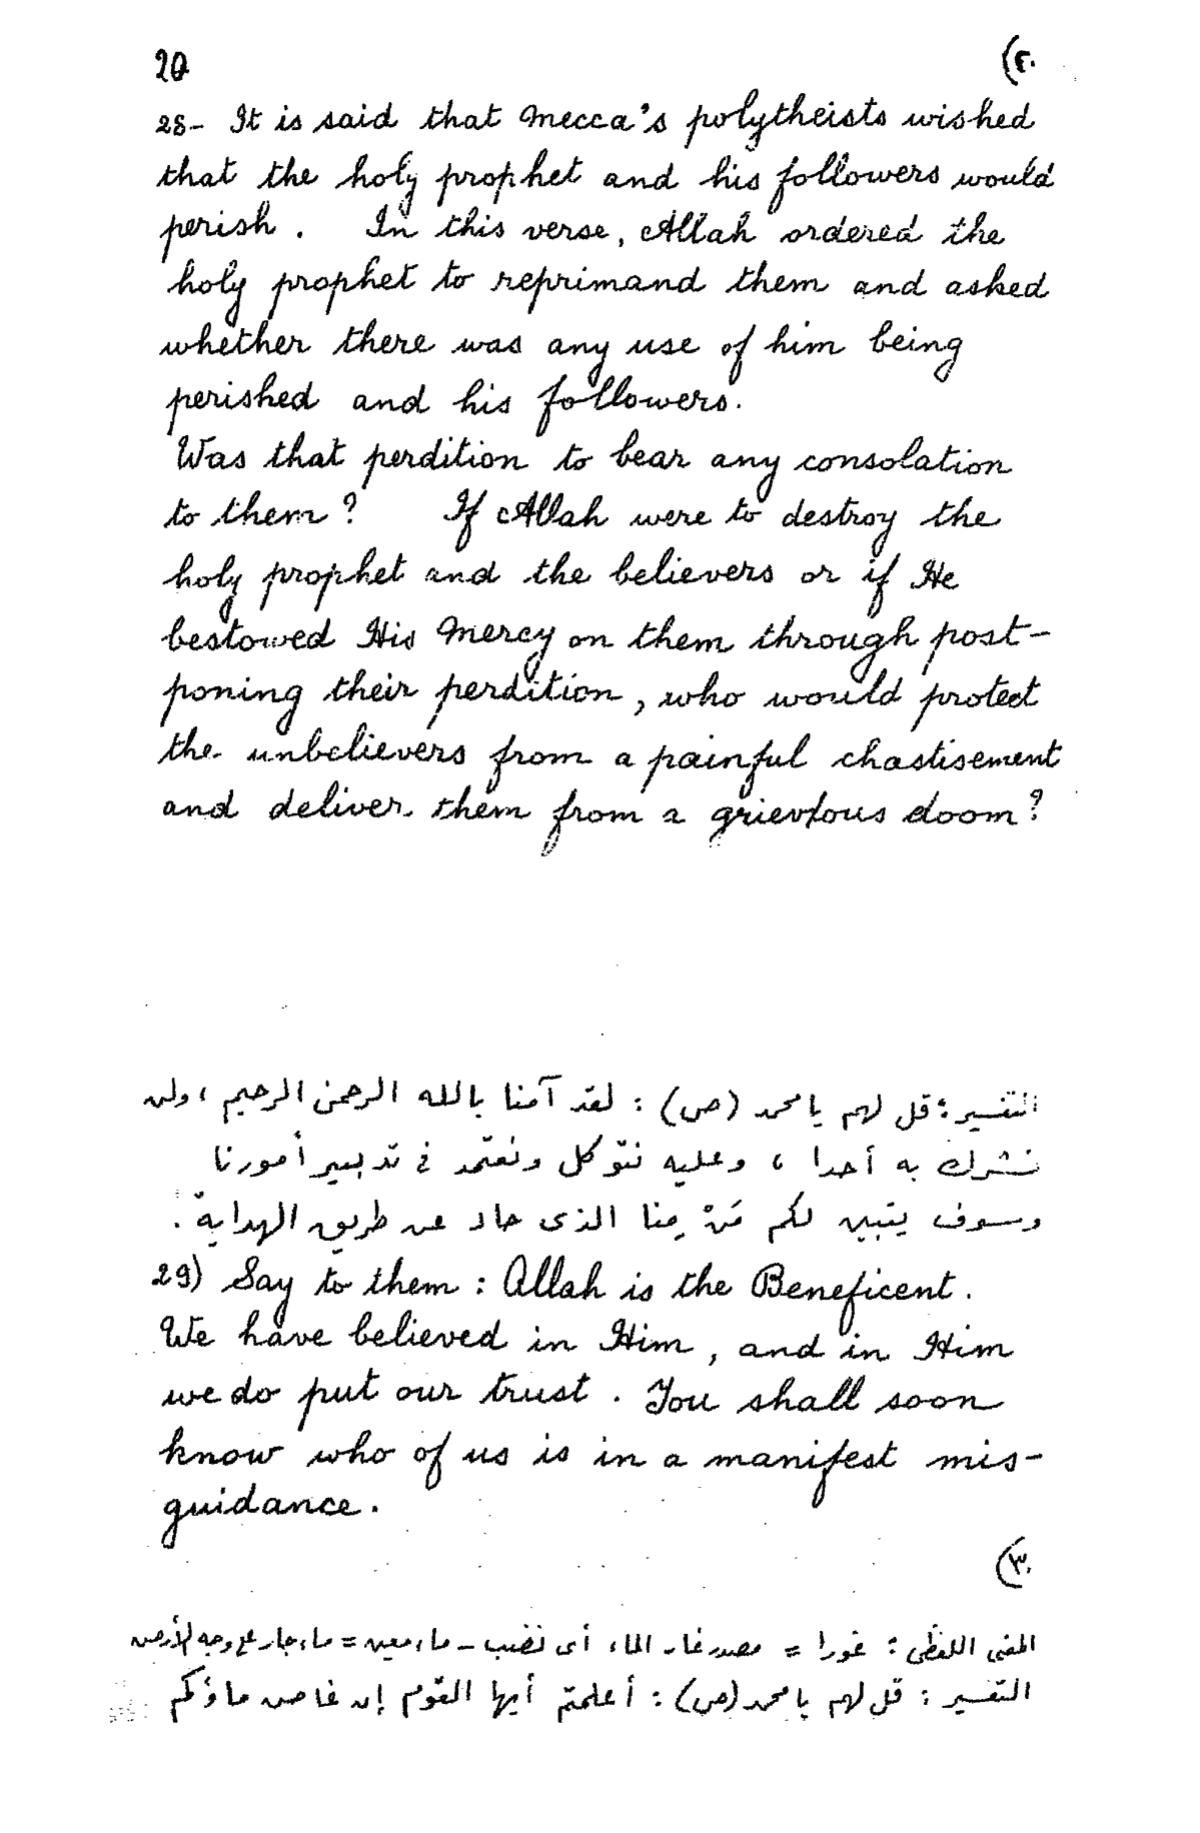 20 (٢٠
28- It is said that Mecca's polytheists wished
that the holy prophet and his followers would
perish . In this verse, Allah ordered the
holy prophet to reprimand them and asked
whether there was any use of him being
perished and his followers.
Was that perdition to bear any consolation
to them? If Allah were to destroy the
holy prophet and the believers or if He
bestowed His Mercy on them through post-
poning their perdition, who would protect
the unbelievers from a painful chastisement
and deliver them from a grievious doom?
التفسير : قل لهم يا محمد (ص) : لقد آمنا بالله الرحمن الرحيم ، ولن
نشرك به أحدا ، وعليه نتوكل ونعتمد في تدبير أمورنا
وسوف يتبين لكم مَنْ مِنا الذى حاد عن طريق الهداية .
29) Say to them : Allah is the Beneficent .
We have believed in Him , and in Him
we do put our trust . You shall soon
know who of us is in a manifest mis-
guidance .
(٣٠
المعنى اللفظى : غورا = مصدر غار الماء أى نضب - ماء معين = ماء جار على وجه الأرض
التفسير : قل لهم يا محمد (ص) : أعلمتم أيها القوم إن غاص ماؤكم